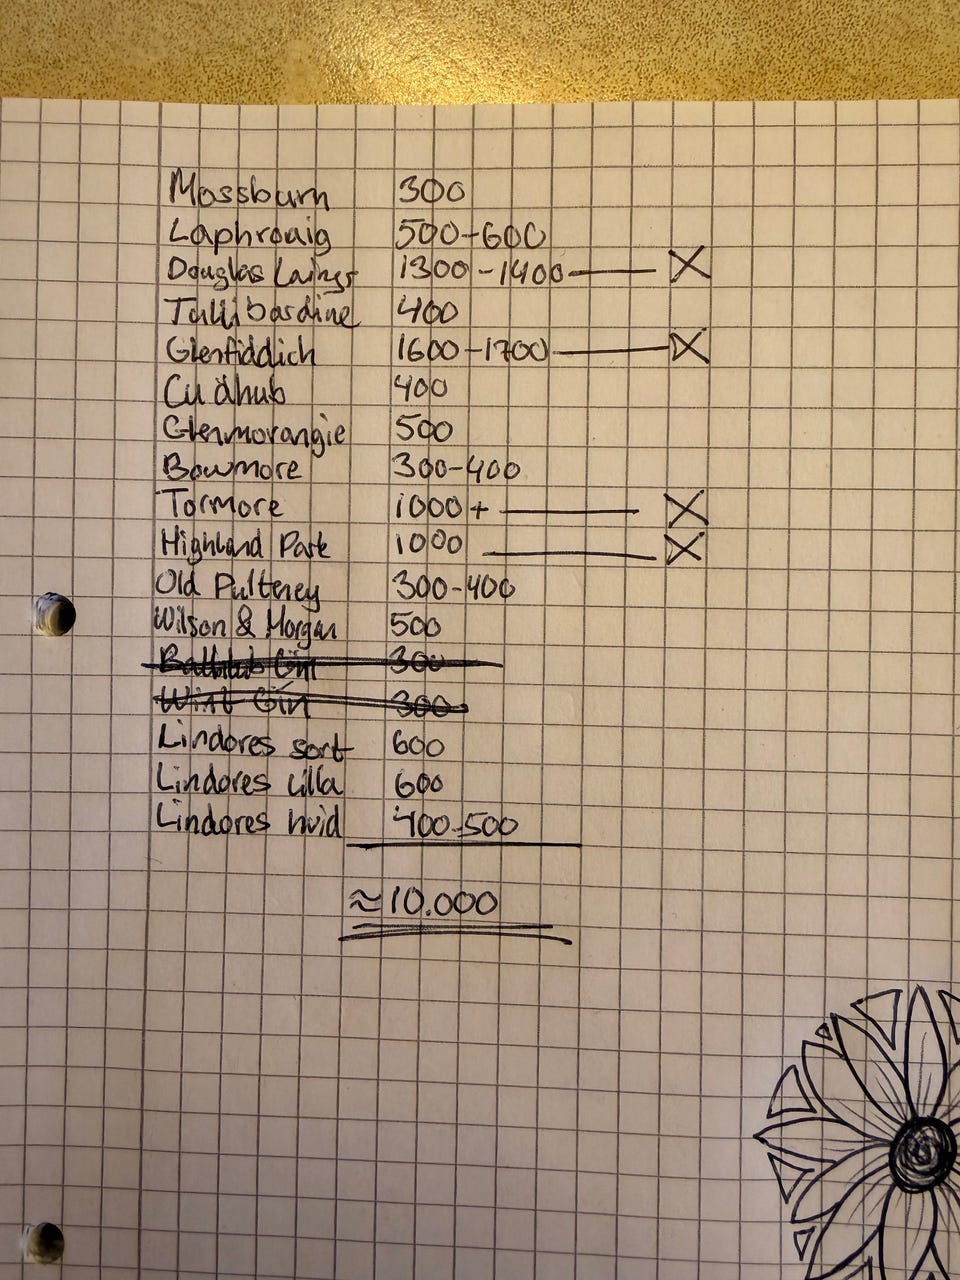 Mossburn 300
Laphrouig 500-600
Douglas Laings 1300-1400 X
Tullibardine 400
Glenfiddich 1600-1700 X
Cu dhub 400
Glenmorangie 500
Bowmore 300-400
Tormore 1000+ X
Highland Park 1000 X
Old Pulteney 300-400
Wilson & Morgan 500
Bathtub Gin 300
Gin 300
Lindores sort 600
Lindores lilla 600
Lindores hvid 400-500
≈10.000